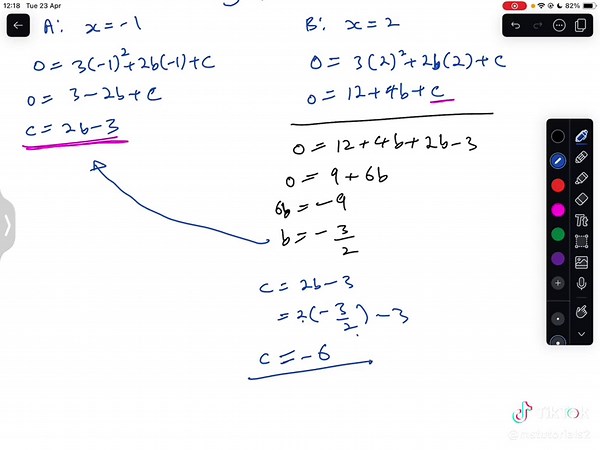 12:18 Tue 23 Apr
82%
A: x = -1
0 = 3(-1)² + 2b(-1) + c
0 = 3 - 2b + c
c = 2b - 3
B: x = 2
0 = 3(2)² + 2b(2) + c
0 = 12 + 4b + c
0 = 12 + 4b + 2b - 3
0 = 9 + 6b
6b = -9
b = -3/2
c = 2b - 3
= 2(-3/2) - 3
c = -6
Tt
TikTok